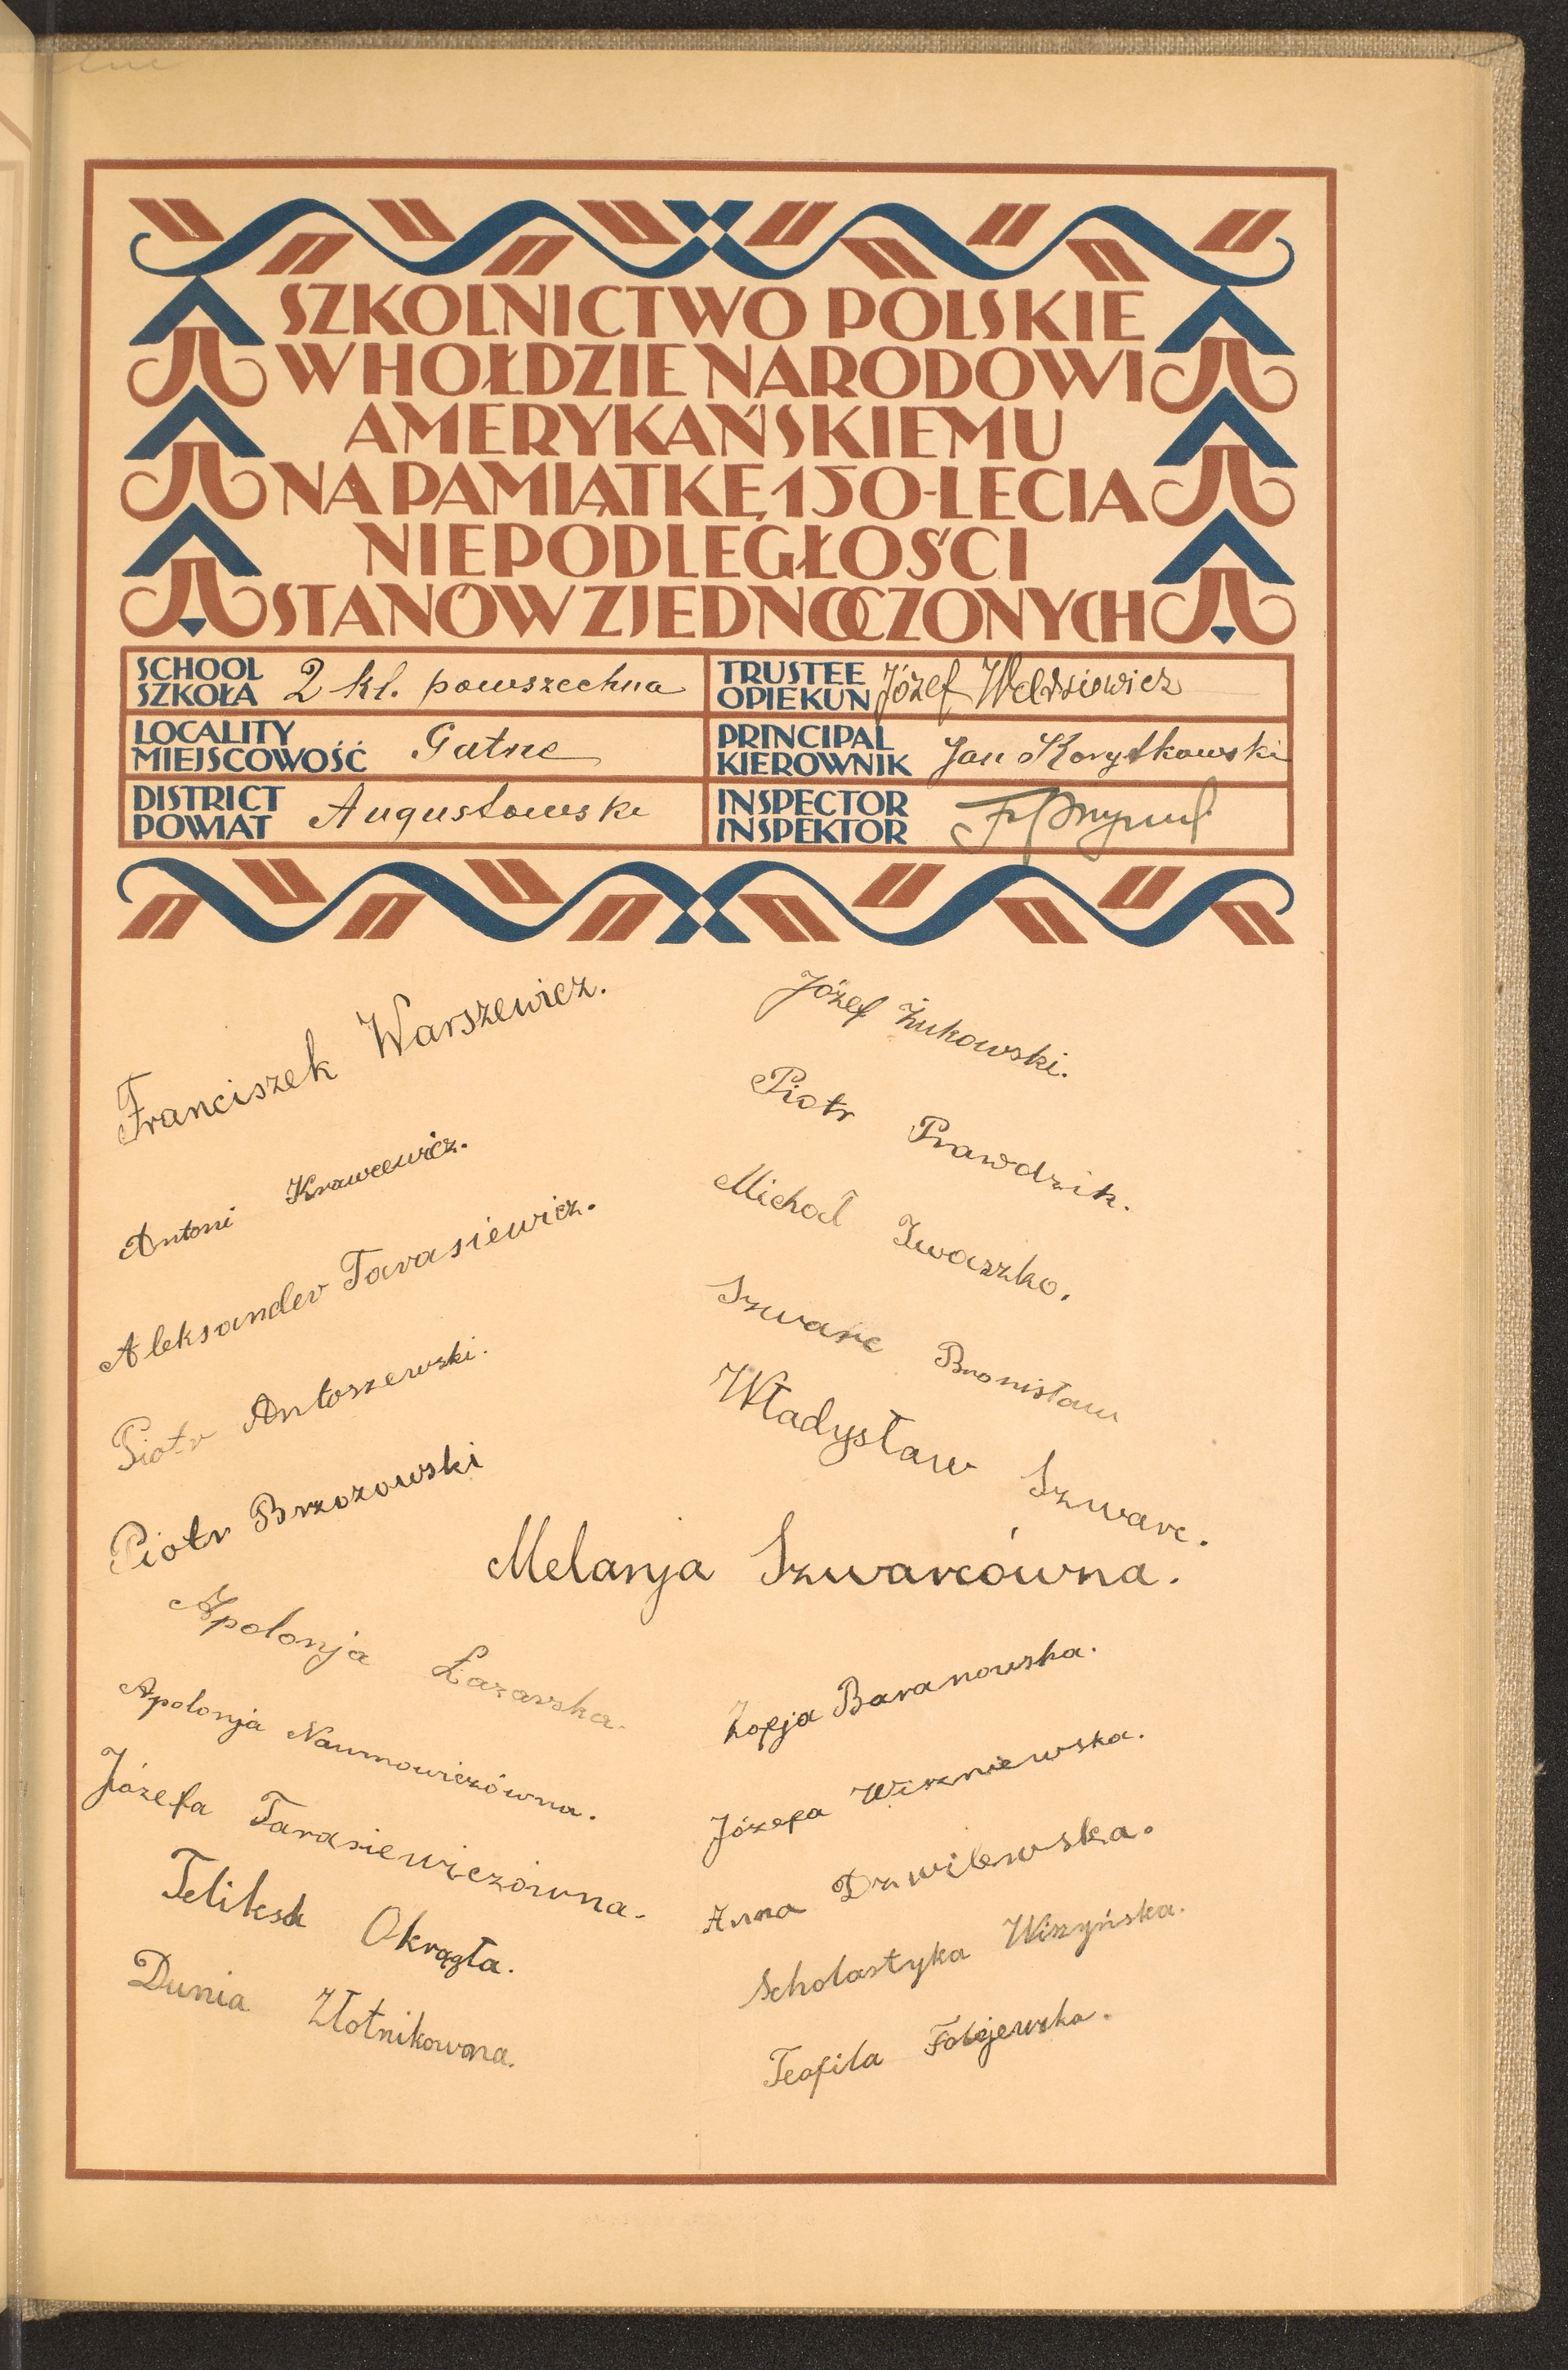 SZKOLNICTWO POLSKIE
W HOŁDZIE NARODOWI
AMERYKAŃSKIEMU
NA PAMIĄTKĘ 150-LECIA
NIEPODLEGŁOŚCI
STANÓW ZJEDNOCZONYCH
SCHOOL
SZKOŁA 2 kl. powszechna
TRUSTEE
OPIEKUN Józef
LOCALITY
MIEJSCOWOŚĆ Gatne
PRINCIPAL
KIEROWNIK Jan Korytkowski
DISTRICT
POWIAT Augustowski
INSPECTOR
INSPEKTOR
Franciszek Warszewicz.
Antoni Krawcewicz.
Aleksander Tarasiewicz.
Piotr Antoszewski.
Piotr Brzozowski
Józef Żukowski.
Piotr Prawdzik.
Michał Iwaszko.
Szwarc Bronisław
Władysław Szwarc.
Melanja Szwarcówna.
Apolonja Łazarska.
Apolonja Naumowiczówna.
Józefa Tarasiewiczówna.
Feliksa Okrągła.
Dunia Złotnikowna.
Zofja Baranowska.
Józefa Wiszniewska.
Anna Drwilewska.
Scholastyka Wiszyńska.
Teofila